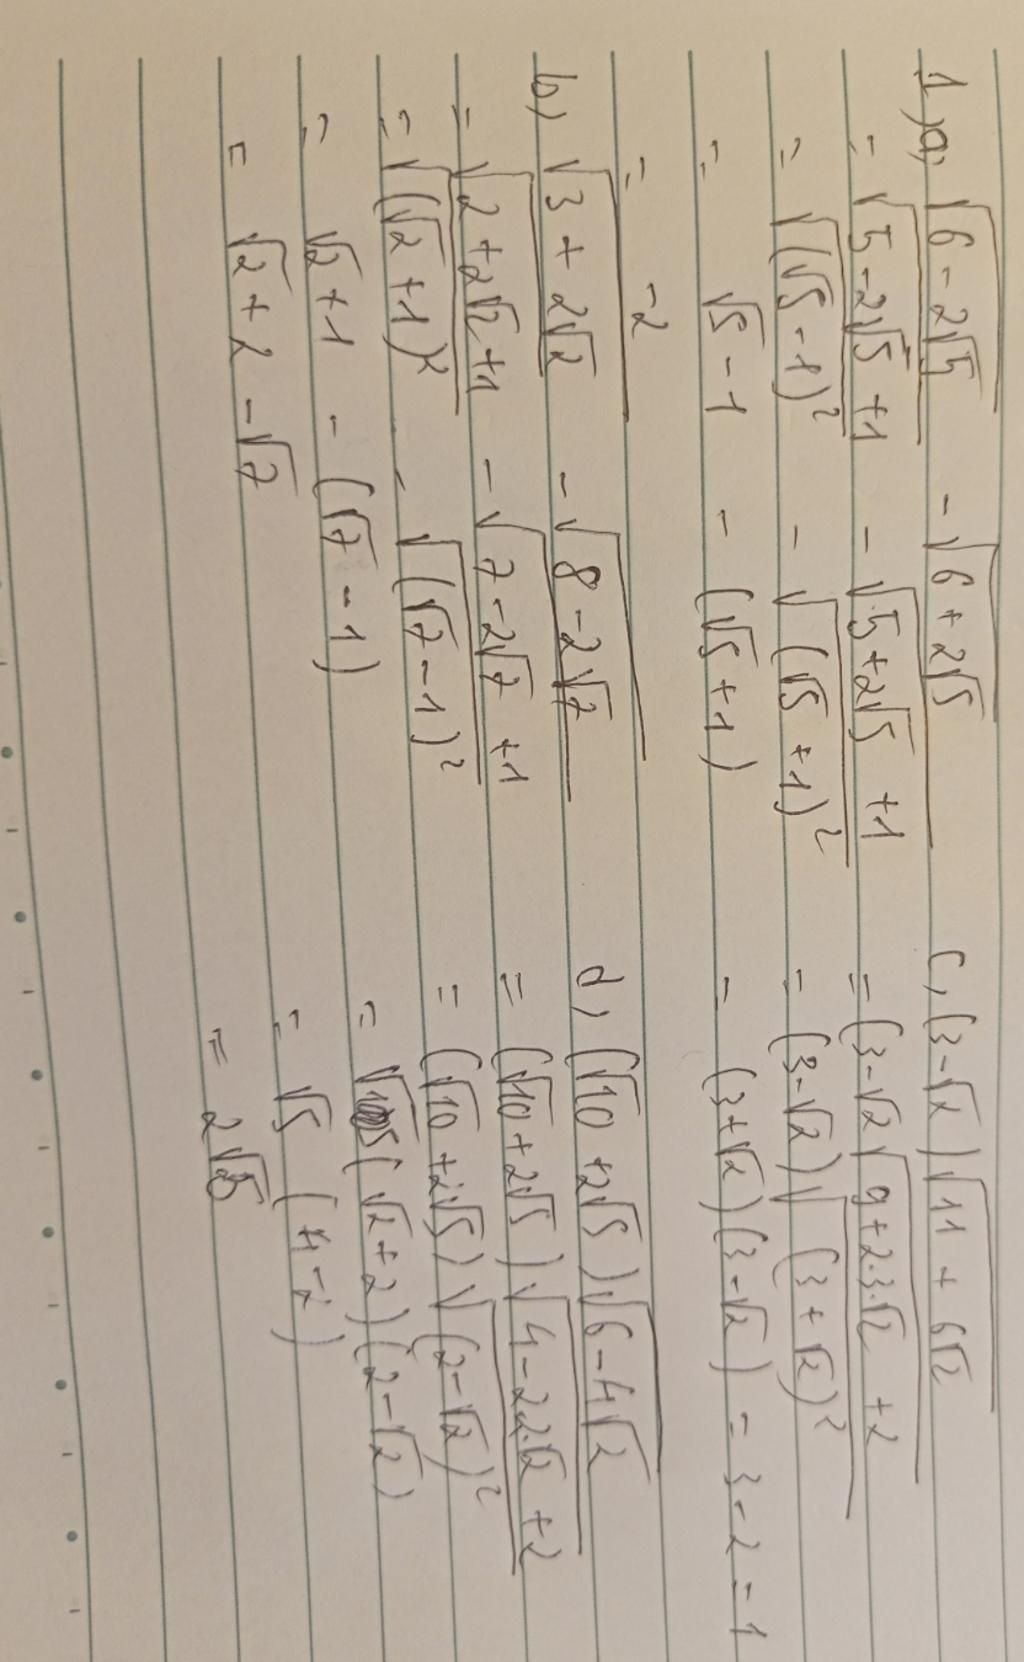 1) a, √(6 - 2√5) - √(6 + 2√5)
= √(5 - 2√5 + 1) - √(5 + 2√5 + 1)
= √((√5 - 1)²) - √((√5 + 1)²)
= √5 - 1 - (√5 + 1)
= -2
b, √(3 + 2√2) - √(8 - 2√7)
= √(2 + 2√2 + 1) - √(7 - 2√7 + 1)
= √((√2 + 1)²) - √((√7 - 1)²)
= √2 + 1 - (√7 - 1)
= √2 + 2 - √7
c, (3 - √2)√(11 + 6√2)
= (3 - √2 √(9 + 2.3.√2 + 2)
= (3 - √2)√((3 + √2)²)
= (3 + √2)(3 - √2) = 3 - 2 = 1
d, (√10 + 2√5)√(6 - 4√2)
= (√10 + 2√5)√(4 - 2.2.√2 + 2)
= (√10 + 2√5)√((2 - √2)²)
= √5(√2 + 2)(2 - √2)
= √5 (4 - 2)
= 2√5